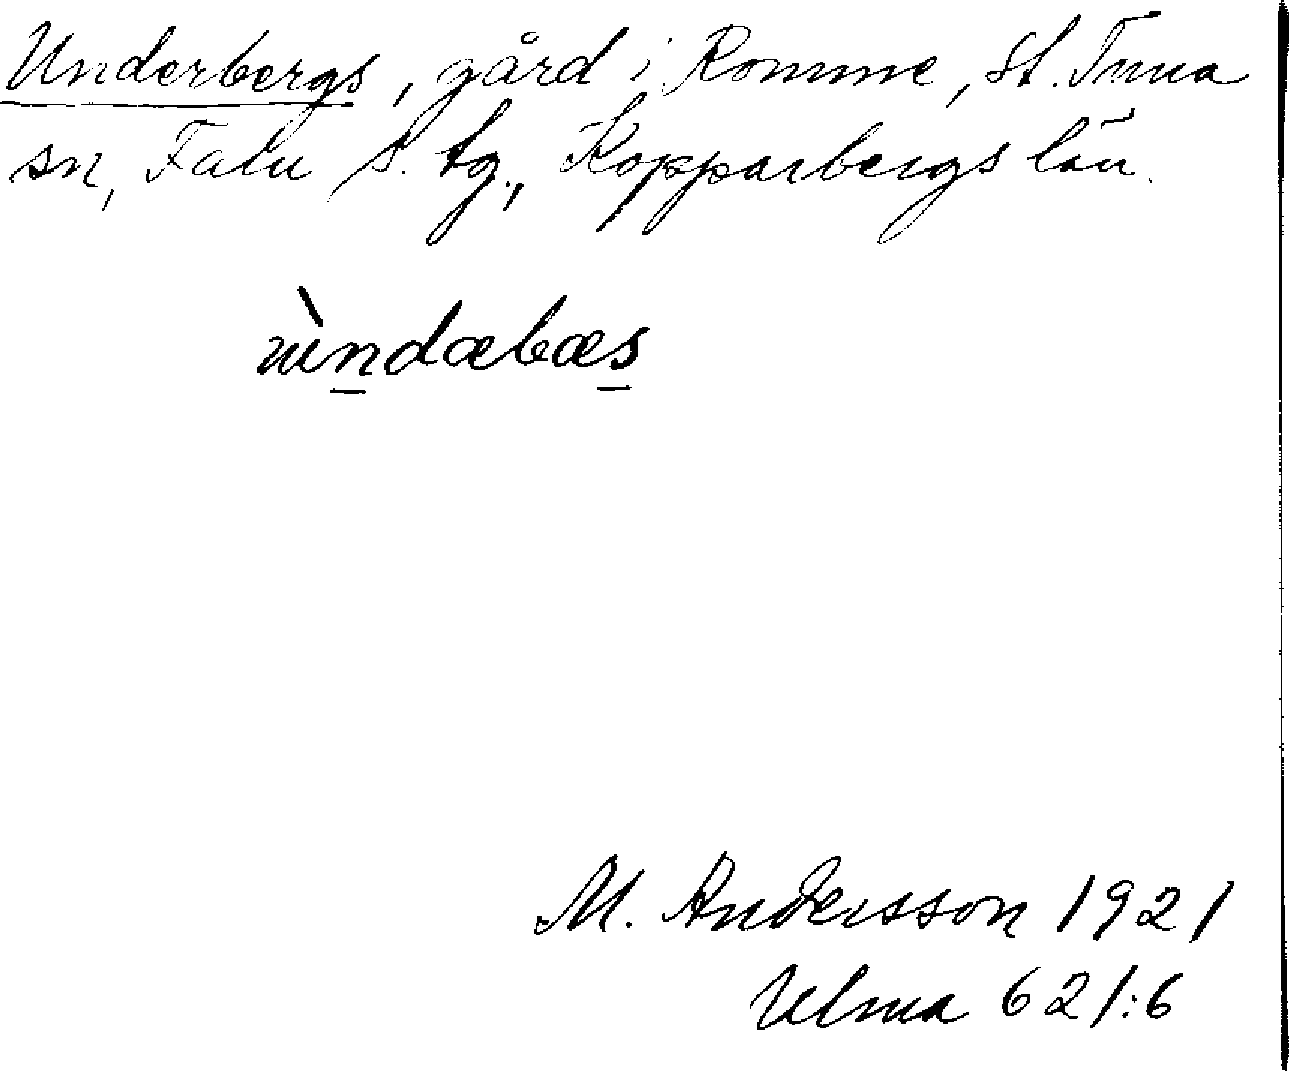 Underbergs, gård i Romme, St. Tuna
sn, Falu s. tg., Kopparbergs län.
M. Andersson 1921
Ulma 621:6